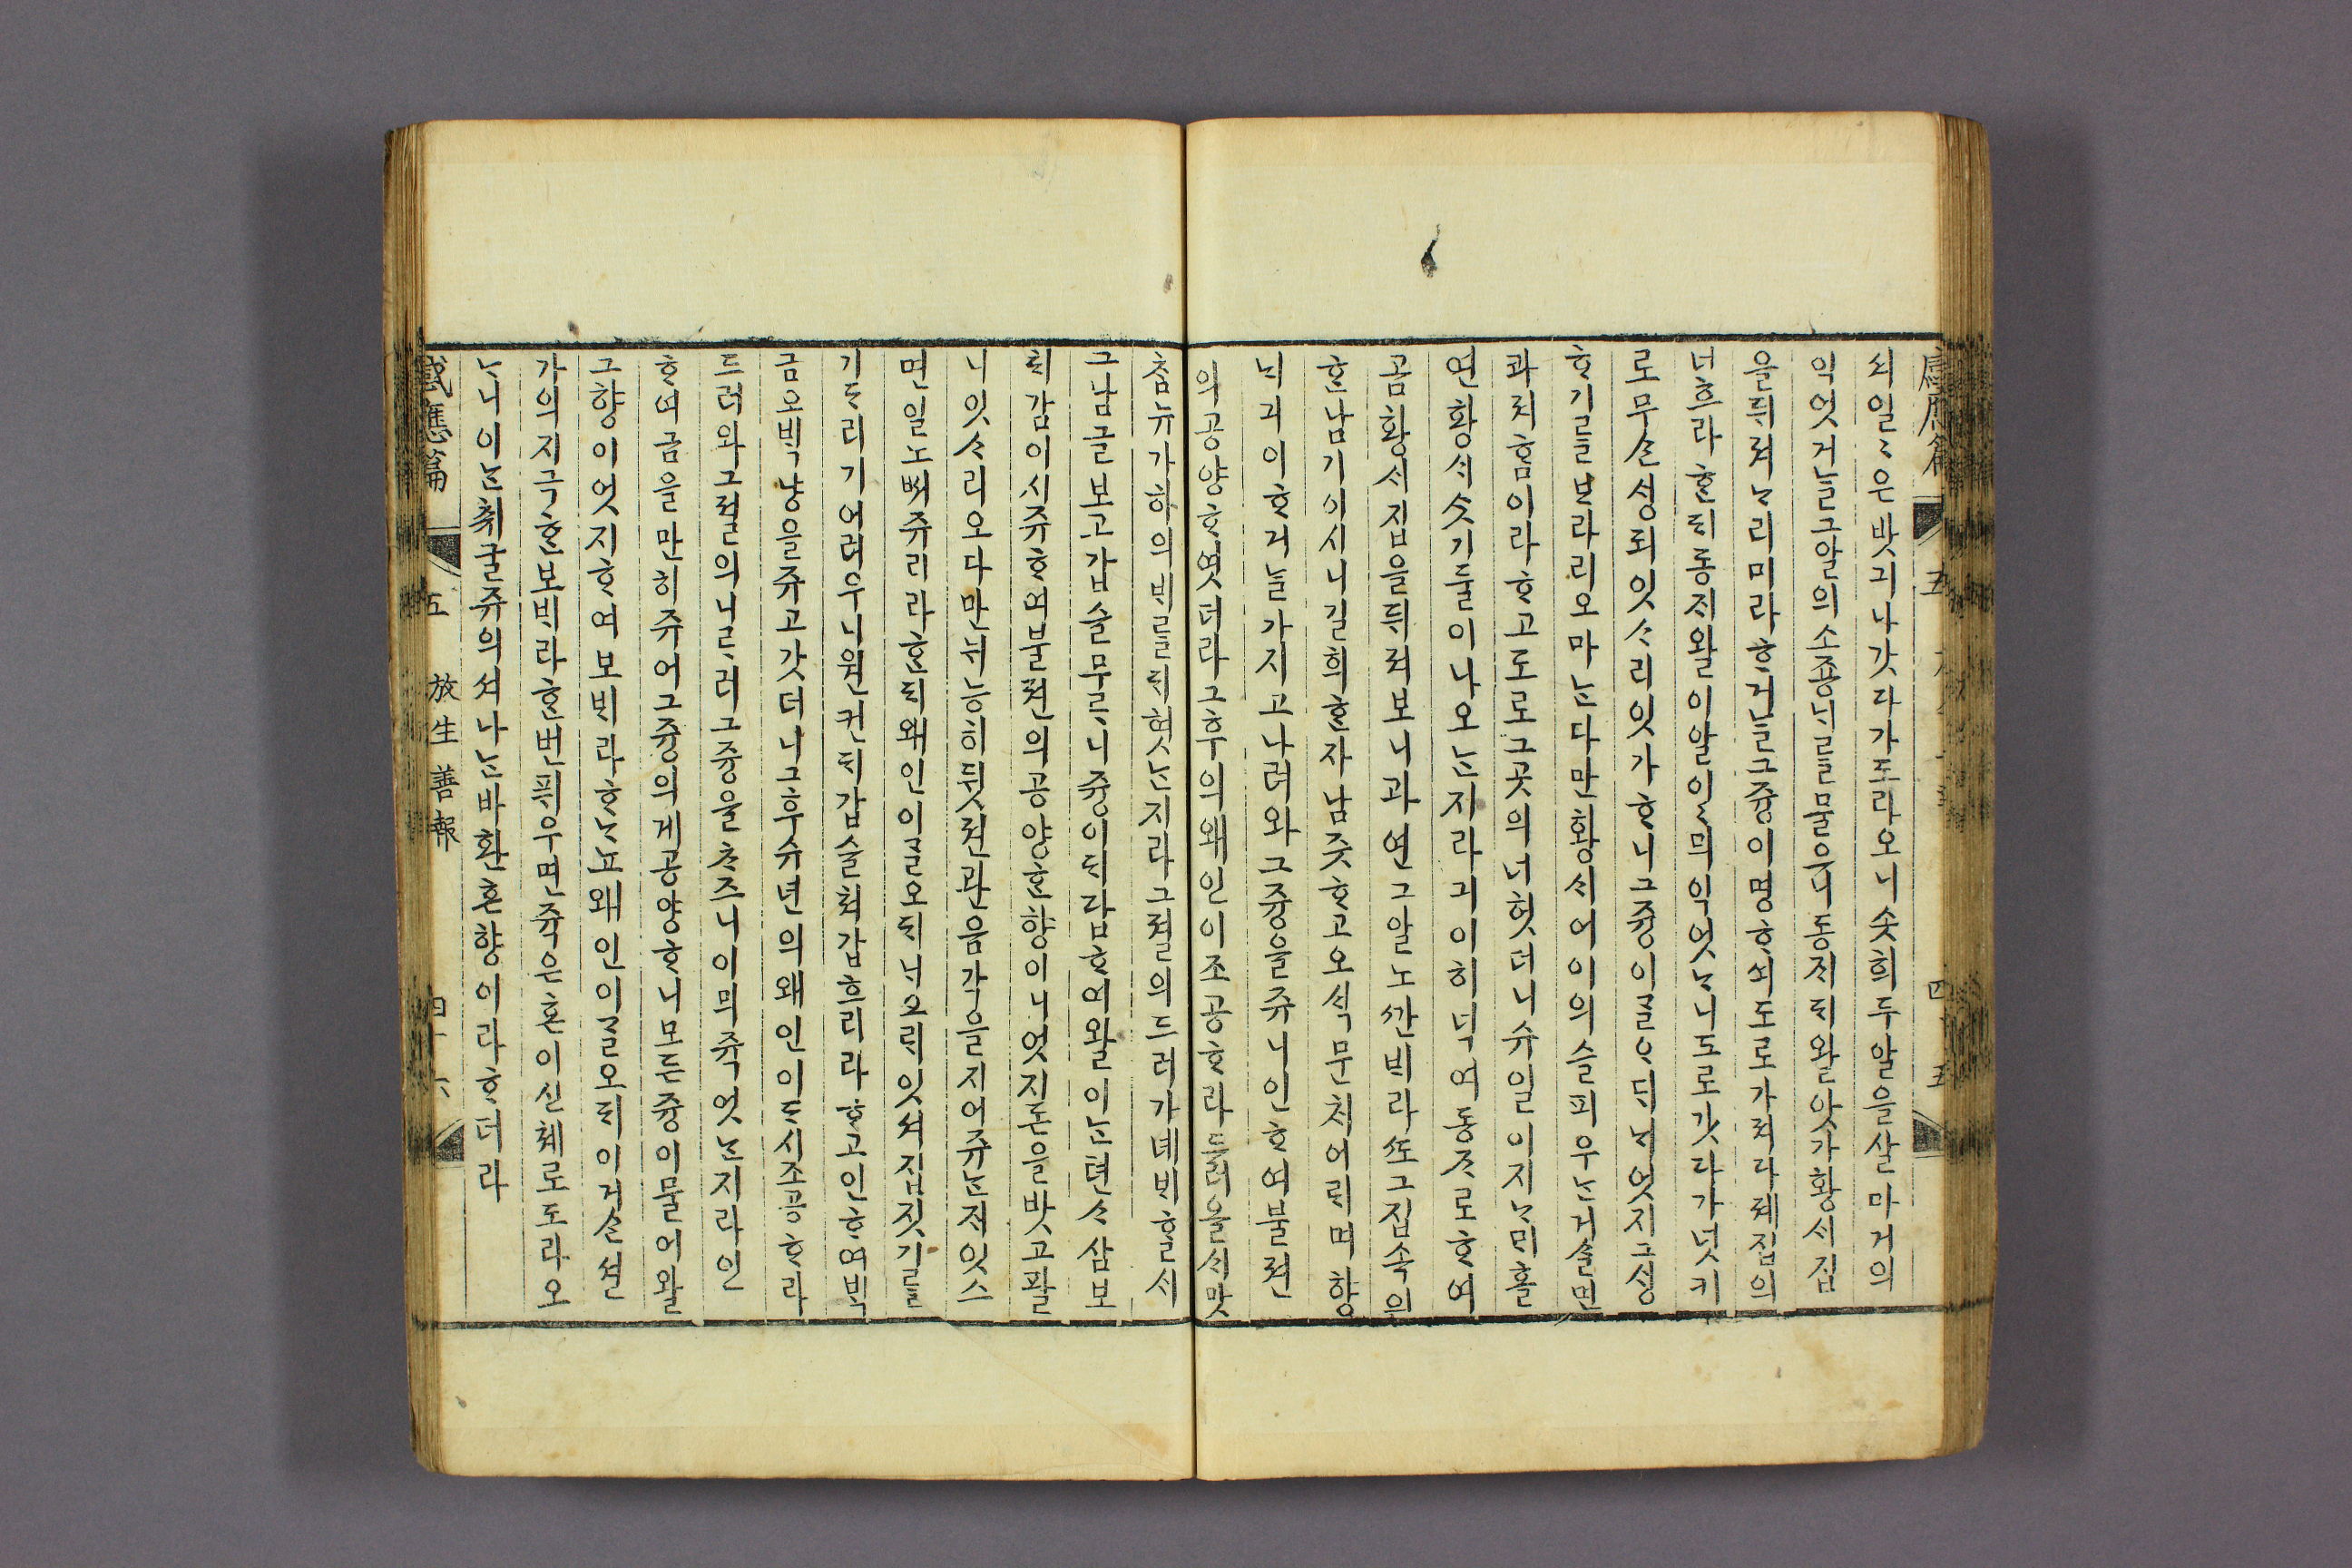 五 四十五
ᄉᆡ일〻은밧긔나갓다가도라오니솟희두알을살마거의
익엇거늘그알의소죵ᄂᆡ를물으니동ᄌᆡᄃᆡ왈앗가황ᄉᆡ집
을뒤져ᄂᆞ리미라ᄒᆞ거늘그즁이명ᄒᆞ되도로가져다제집의
너흐라ᄒᆞᆫᄃᆡ동ᄌᆡ왈이알이〻믜익엇ᄂᆞ니도로갓다가넛키
로무ᄉᆞᆫ싱되잇ᄉᆞ리잇가ᄒᆞ니그즁이ᄀᆞᆯᄋᆞᄃᆡᄂᆡ엇지그싱
ᄒᆞ기를ᄇᆞ라리오마ᄂᆞᆫ다만황ᄉᆡ어이의슬피우ᄂᆞᆫ거슬면
과져ᄒᆞᆷ이라ᄒᆞ고도로그곳의너헛더니슈일이지ᄂᆞᄆᆡ홀
연황ᄉᆡᄉᆞᆺ기둘이나오ᄂᆞᆫ지라긔이히넉여동ᄌᆞ로ᄒᆞ여
곰황ᄉᆡ집을뒤져보니과연그알노ᄭᅡᆫᄇᆡ라ᄯᅩ그집속의
ᄒᆞᆫ남기이시니길희ᄒᆞᆫ자남즛ᄒᆞ고오ᄉᆡᆨ문ᄎᆡ어ᄅᆡ며향
ᄂᆡ긔이ᄒᆞ거늘가지고나려와그즁을쥬니인ᄒᆞ여불젼
의공양ᄒᆞ엿더라그후의왜인이조공ᄒᆞ라들러올ᄉᆡ맛
츰뉴가하의ᄇᆡ를ᄃᆡ혓ᄂᆞᆫ지라그졀의드러가녜ᄇᆡᄒᆞᆯᄉᆡ
그남글보고갑슬무ᄅᆞ니즁이ᄃᆡ답ᄒᆞ여왈이ᄂᆞᆫ년ᄉᆞ삼보
ᄐᆡ감이시쥬ᄒᆞ여불젼의공양ᄒᆞᆫ향이니엇지돈을밧고팔
니잇ᄉᆞ리오다만뉘능히뒷젼관음각을지어쥬ᄂᆞᆫᄌᆡ잇스
면일노ᄡᅥ쥬리라ᄒᆞᆫᄃᆡ왜인이ᄀᆞᆯ오ᄃᆡᄂᆡ오ᄅᆡ잇셔집짓기를
기ᄃᆞ리기어려우니원컨ᄃᆡ갑슬쳐갑흐리라ᄒᆞ고인ᄒᆞ여ᄇᆡᆨ
금오ᄇᆡᆨ냥을쥬고갓더니그후슈년의왜인이ᄃᆞ시조공ᄒᆞ라
드러와그졀의니ᄅᆞ러그즁을ᄎᆞᄌᆞ니이믜쥭엇ᄂᆞᆫ지라인
ᄒᆞ여금을만히쥬어그즁의게공양ᄒᆞ니모든즁이물어왈
그향이엇지ᄒᆞ여보ᄇᆡ라ᄒᆞᄂᆞ뇨왜인이ᄀᆞᆯ오ᄃᆡ이거ᄉᆞᆫ션
가의지극ᄒᆞᆫ보ᄇᆡ라ᄒᆞᆫ번퓌우면쥭은혼이신체로도라오
ᄂᆞ니이ᄂᆞᆫ취굴쥬의셔나ᄂᆞᆫ바환혼향이라ᄒᆞ더라
感應篇 五 放生善報 四十六